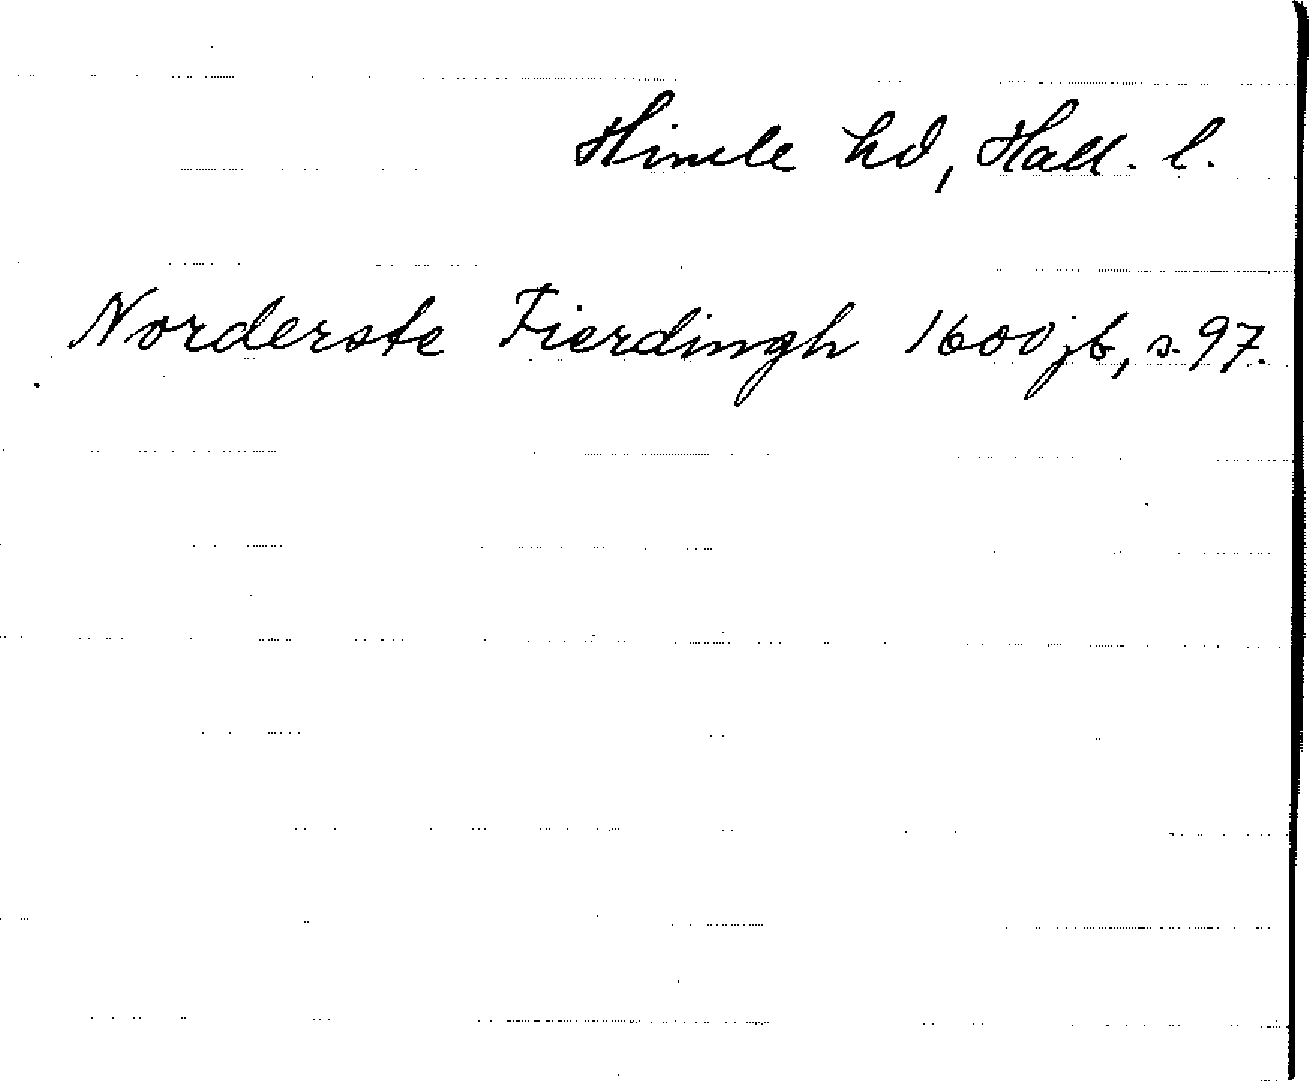 Himle hd, Hall. l.
Norderste Fierdingh 1600 jb, s. 97.